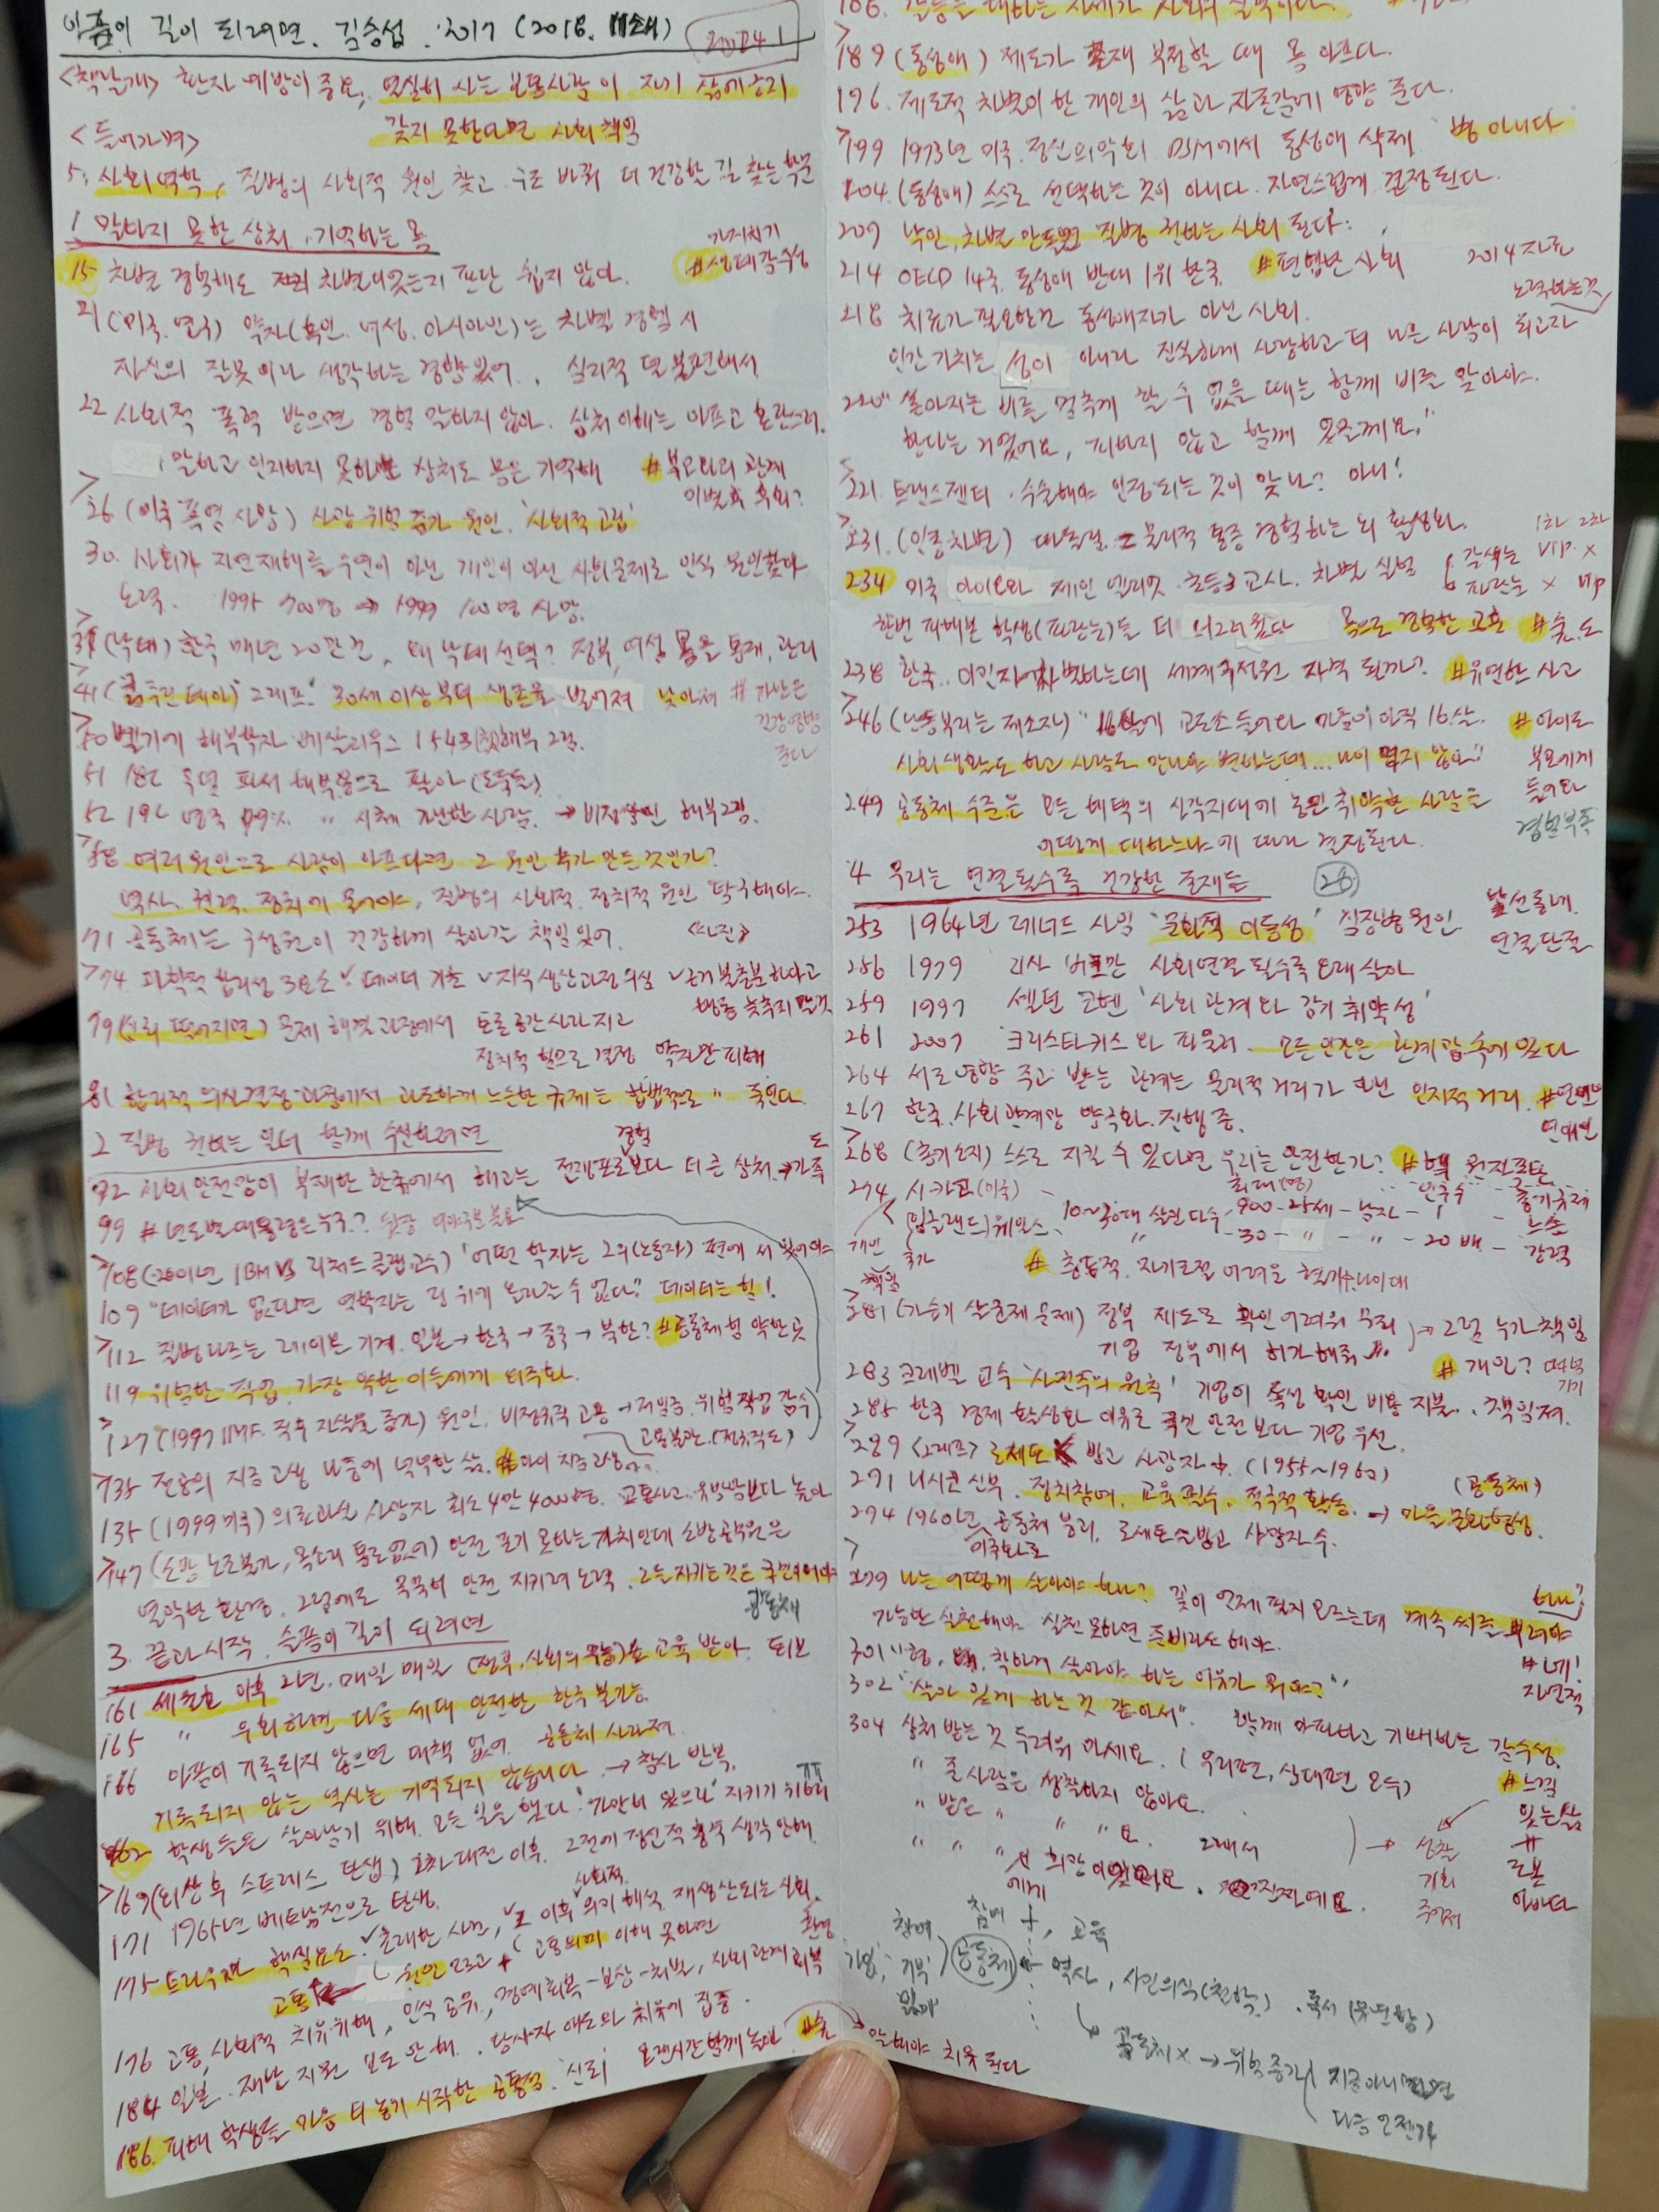 아픔이 길이 되려면. 김승섭. 2017 (2018. 11쇄) 2024.1
<책날개> 환자 예방이 중요, 열실히 사는 보통사람이 자기 삶에 긍지
갖지 못한다면 사회 책임
<들어가며>
5. 사회역학, 질병의 사회적 원인 찾고 구조 바꿔 더 건강한 길 찾는 학문
1 말하지 못한 상처, 기억하는 몸
15 차별 경험해도 차별 판단 쉽지 않다. #성인지감수성
21 (미국. 연구) 약자(흑인. 여성. 아시아인)는 차별 경험 시
자신의 잘못이라 생각하는 경향 있어. 심리적 덜 불편해서
22 사회적 폭력 받으면 경험 말하지 않아. 상처 이해는 아프고 혼란스러.
말하고 인지하지 못하는 상처도 몸은 기억해 #부모와의 관계
이별의 후회?
26 (미국 폭염 사망) 사망 위험 증가 원인. '사회적 고립'
30. 사회가 자연재해를 우연이 아닌 개인이 아닌 사회문제로 인식 원인찾아
노력. 1995 700명 → 1999 100명 사망.
(낙태) 한국 매년 20만건, 왜 낙태 선택? 정부, 여성 몸을 통제, 관리
41 "그래프" 30세 이상부터 생존율 벌어져 낮아져 # 가난은
건강 영향
준다
50 벨기에 해부학자 베살리우스 1543 첫 해부 그림.
51 18C 무덤 파서 해부용으로 팔아 (도둑들)
52 19C 영국 99% 〃 시체 가난한 사람. → 비정상인 해부그림.
58 여러 원인으로 사람이 아프다면 그 원인 누가 만든 것인가?
역사. 권력. 정치에 물어야, 질병의 사회적. 정치적 원인 탐구해야.
71 공동체는 구성원이 건강하게 살아갈 책임 있어. <사진>
74 과학적 합리성 3요소 ✓데이터 기초 ✓지식생산과정 의심 ✓근거 불충분하다고
행동 늦추지 말것
79 (신뢰 떨어지면) 문제 해결 과정에서 토론공간 사라지고
정치적 힘으로 결정 약자만 피해
81 합리적 의사결정 과정에서 과도하게 느슨한 규제는 "합법적으로" 죽인다
2 질병 권하는 일터 함께 수선하려면
92 사회 안전망이 부재한 한국에서 해고는 전쟁포로 경험보다 더 큰 상처 → 가족도
99 # 년도별 대통령은 누구?
108 (-2001년 IBM vs 리처드 클랩교수) '어떤 학자는 그의(노동자) 편에 서 있어야
109 "데이터가 없다면 역학자는 링 위에 올라갈 수 없다." 데이터는 힘!
112 질병 나르는 레이온 기계. 일본 → 한국 → 중국 → 북한? #공동체 힘 약한 곳
119 위험한 작업 가장 약한 이들에게 외주화.
127 (1997 IMF. 직후 자살율 증가) 원인. 비정규직 고용 → 저임금. 위험 작업 감수
고용불안.(정규직도)
135 전공의 지금 고생 나중에 넉넉한 삶. #아이 지금고생
135 (1999 미국) 의료과실 사망자 최소 4만 4000명. 교통사고. 유방암보다 높아
147 (소방 노조불가, 목소리 통로없어) 안전 포기 못하는 가치인데 소방공무원은
열악한 환경. 그럼에도 묵묵히 안전 지키려 노력. 그들 지키는 것은 국민이어야
공동체
3. 끝과 시작. 슬픔이 길이 되려면
161 세월호 이후 2년. 매일 매일 교육 받아. 되묻
165 〃 우회하면 다음 세대 안전한 한국 불가능.
166 아픔이 기록되지 않으면 대책 없어. 공동체 사라져
기록되지 않는 역사는 기억되지 않습니다. → 참사 반복.
162 학생들은 살아남기 위해 모든 일을 했다. '가만히 있으라' 지키기 위해 ㅠㅠ
169 (외상 후 스트레스 탄생) 2차대전 이후. 그전에 정신적 충격 생각 안해.
171 1965년 베트남전으로 탄생.
175 트라우마 핵심요소 ✓초래한 사건, ✓그 이후 사회적 의미 해석. 재생산되는 사회.
고통↑ ← 원인 모르고 + 고통의미 이해 못하면 환경
176 고통, 사회적 치유위해, 인식 공유, 경제회복 - 보상 - 처벌, 사회관계 회복
184 일본. 재난 지원 보도 안해. 당사자 애도와 치유에 집중.
186. 피해 학생들 마음 터 놓기 시작한 공통점. 신뢰 오랜시간 함께 놀아 #술
말해야 치유된다
189 (동성애) 제도가 존재 부정할 때 몸 아프다.
196. 제도적 차별이 한 개인의 삶과 자존감에 영향 준다.
199 1973년 미국. 정신의학회 DSM에서 동성애 삭제 병 아니다
204. (동성애) 스스로 선택하는 것이 아니다. 자연스럽게 결정된다.
207 낙인, 차별 만드면 질병 권하는 사회 된다.
214 OECD 14국. 동성애 반대 1위 한국 #편협한 사회 2014 자료
218 치료가 필요한건 동성애자가 아닌 사회. 노력하는것
인간가치는 성이 아니라 진실하게 사랑하고 더 나은 사람이 되고자
220 "쏟아지는 비를 멈추게 할 수 없을 때는 함께 비를 맞아야.
한다는 거였어요, 피하지 않고 함께 맞을께요."
221. 트랜스젠더. 수술해야 인정되는 것이 맞나? 아니!
231. (인종차별) 따돌림. = 물리적 통증 경험하는 뇌 활성화. 1차 2차
234 미국 아이오와 제인 엘리엇. 초등교사. 차별 실험 갈색눈 VIP ×
파란눈 × VIP
한번 피해본 학생(파란눈)들 더 너그러웠다 몸으로 경험한 교훈
238 한국. 이민자 차별하는데 세계국정원 자격 될까? #유연한 사고
246 (난동부리는 재소자) "16살에 교도소 들어와 마음이 아직 16살. #아이도
사회생활도 하고 사람도 만나야 변하는데... 나이 먹지 않아" 부모에게
249 공동체 수준은 모든 혜택의 사각지대에 놓인 취약한 사람을 들어와
어떻게 대하느냐에 따라 결정된다. 경험부족
4 우리는 연결될수록 건강한 존재들
253 1964년 레너드 사임 '문화적 이동성' 심장병 원인
연결단절
256 1979 리사 버크만 사회연결 될수록 오래 살아
259 1997 셸던 코헨 '사회 관계와 감기 취약성'
261 2007 크리스타키스와 파울러. 모든 인간은 관계망 속에 있다
264 서로 영향 주고 받는 관계는 물리적 거리가 아닌 인지적 거리
267 한국. 사회관계망 약국화. 진행중.
268 (총기소지) 스스로 지킬 수 있다면 우리는 안전한가? #핵. 원자폭탄
274 시카고(미국) 총기규제
(잉글랜드) 웨일스. 10~30대 살인 다수 - 900 - 25세 - 남자 - 1 느슨
30 - 〃 - 〃 - 20배 - 강력
개인 국가
책임
# 충동적. 자기조절 어려운 혈기
281 (가습기 살균제 문제) 정부 제도로 확인 어려워 무죄 → 그럼 누가 책임
기업 정부에서 허가해줘 〃. # 개인?
283 크레벨 교수 '사전주의 원칙' 기업이 독성 확인 비용 지불, 책임져.
285 한국 경제 활성화 이유로 국민 안전보다 기업 우선.
289 <그래프> 로제토 사망자↓. (1955~1960)
291 니시코 신부. 정치참여. 교육 필수. 적극적 활동. → 마을 문화형성. (공동체)
294 1960년 공동체 붕괴. 로세토 사망자 수.
미국화로
299 나는 어떻게 살아야 하나? 꽃이 언제 필지 모르는데 계속 씨를 뿌려야 하나?
가능한 실천해야. 실천 못하면 준비라도 해야. #네!
301 "형, 착하게 살아야 하는 이유가 뭐야?"
302 "살아 있게 하는 것 같아서". 함께 아파하고 기뻐하는 감수성.
304 상처 받는 것 두려워 마세요. (우리편, 상대편 모두)
〃 준 사람은 성찰하지 않아요.
〃 받은 〃 〃 〃 요. 그래서 → 성찰
기회
〃 〃 에게 희망이 있어요. 진짜예요.
참여 참여 교육
기업, 기부 공동체 역사, 시민의식(철학). 독서
공동체 × → 위험증가 지금 아니면
다음 언젠가